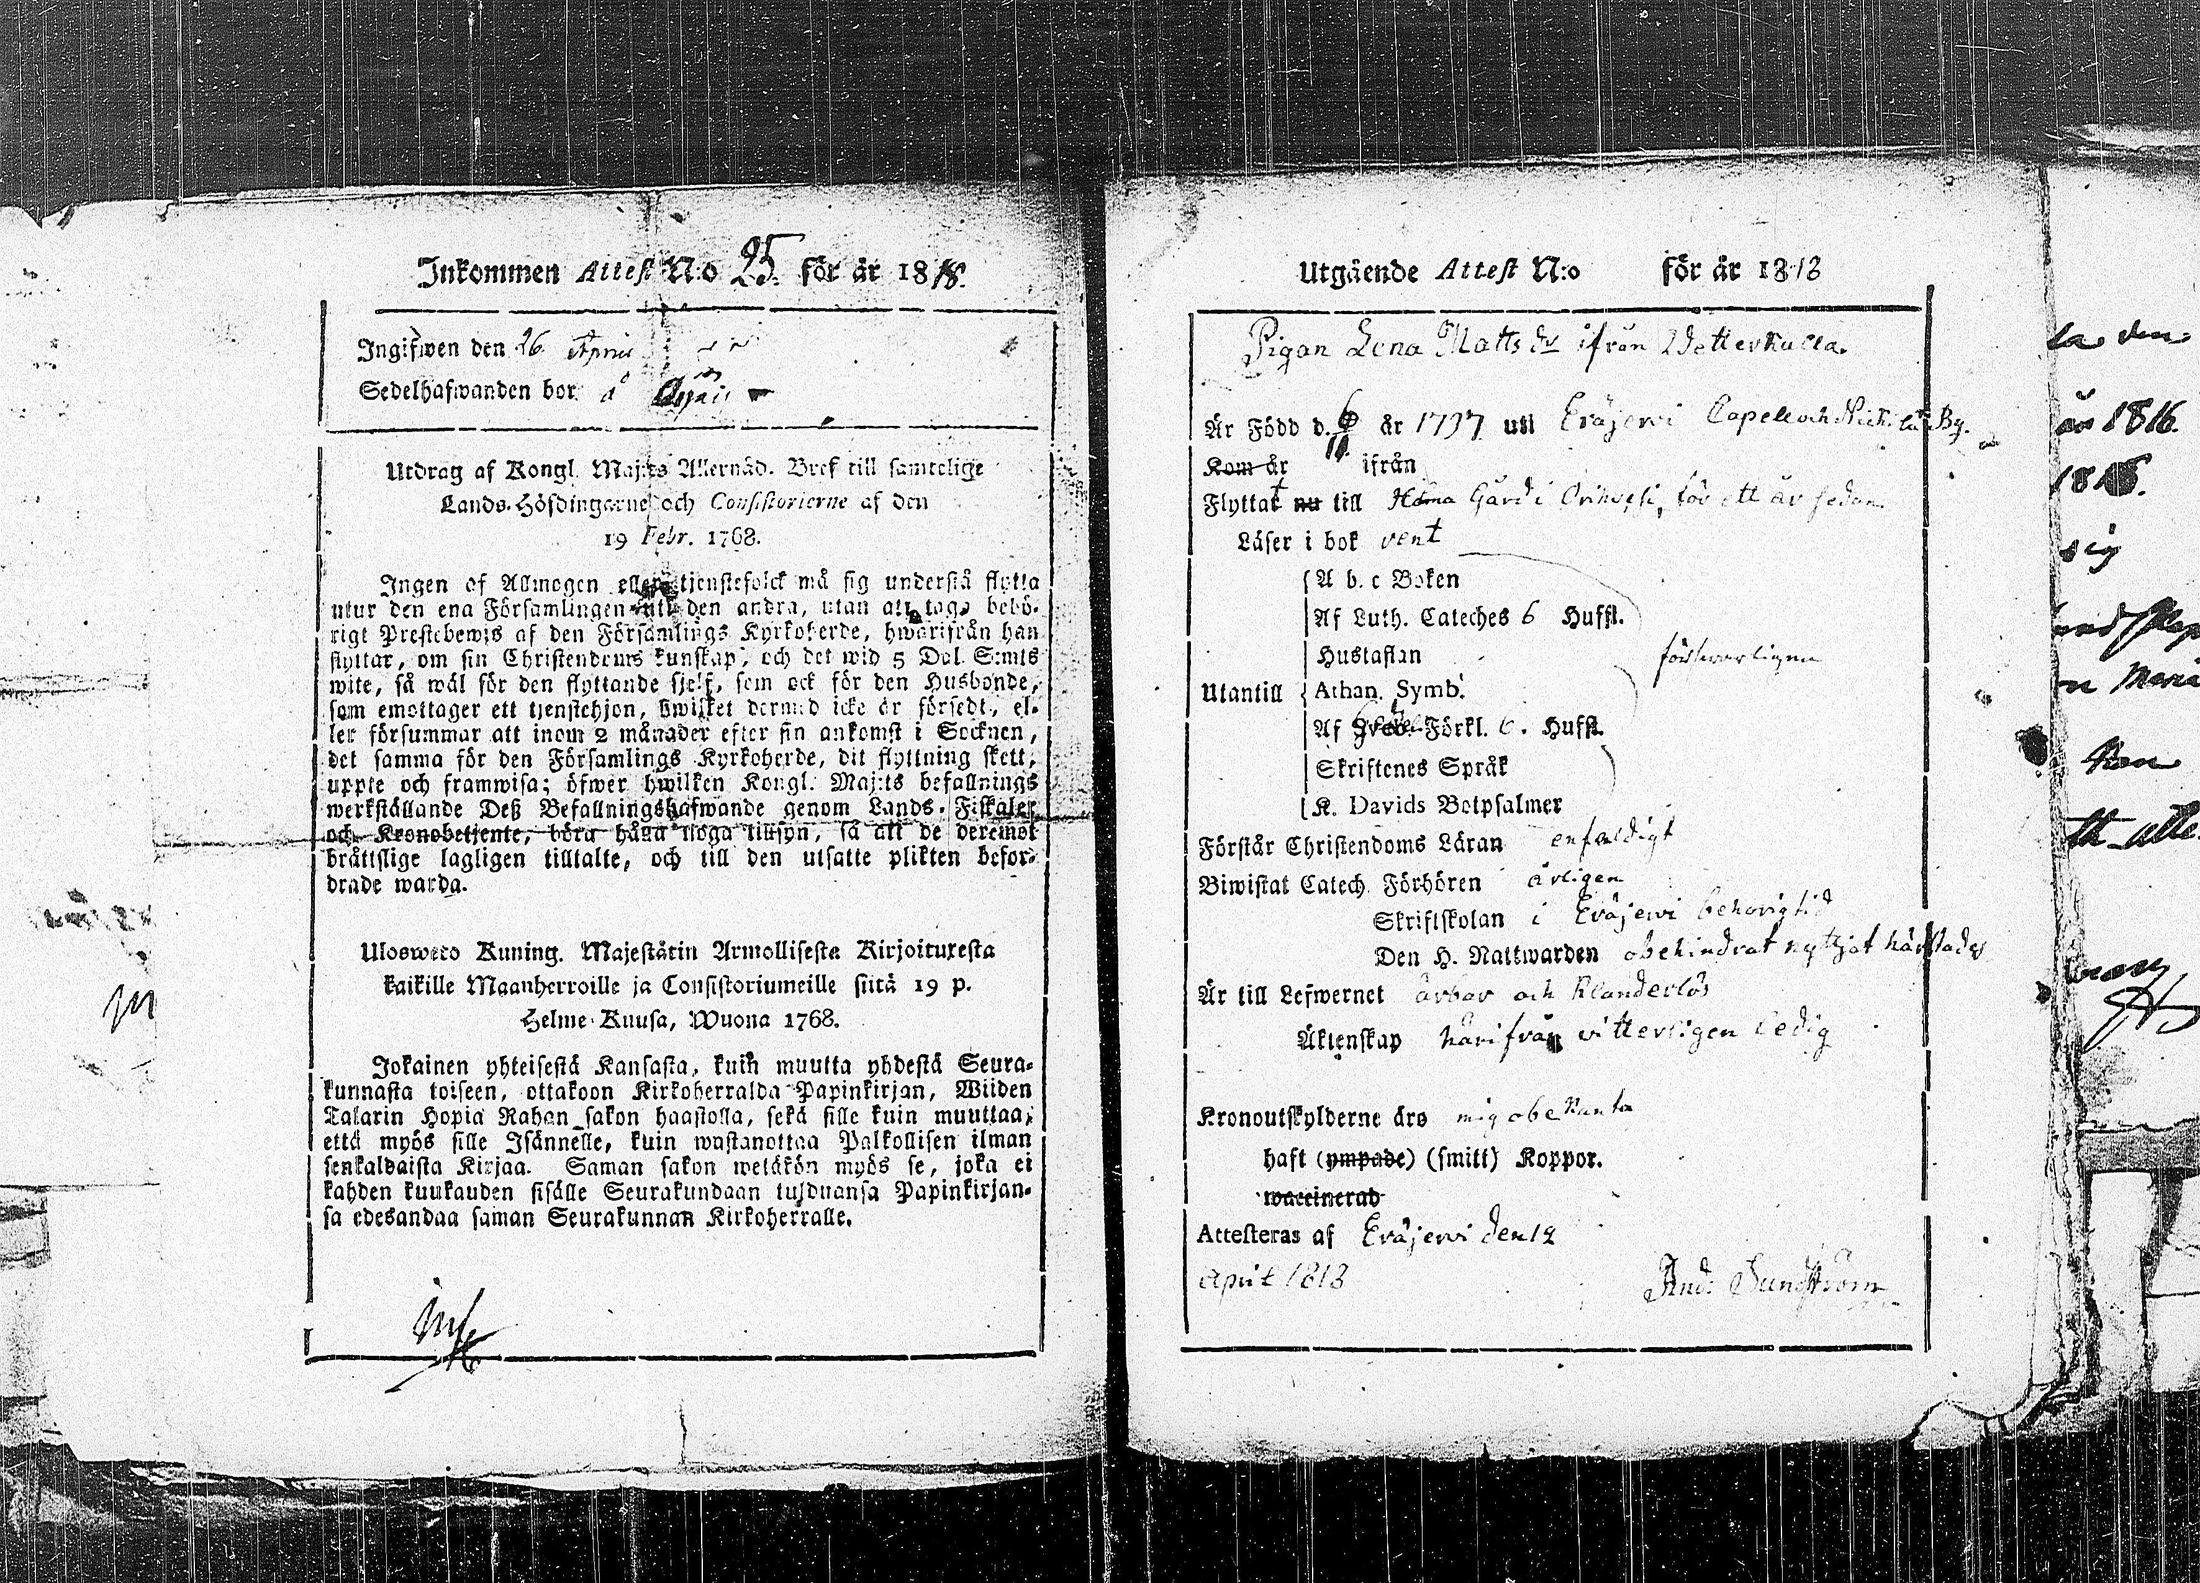 Inkommen Attest N:o 25. för år 1818.
Ingifwen den 26 April
Sedelhafwanden bor å
Utdrag af Kongl. Maj:ts Allernåd. Bref till samtelige
Lands-Höfdingarne och Consistorierne af den
19 Febr. 1768.
Ingen af Allmogen eller tjenstefolck må sig understå flytta
utur den ena Församlingen uti den andra, utan att taga behö-
rigt Prestebewis af den Församlings Kyrkoherde, hwarifrån han
flyttar, om sin Christendoms kunskap, och det wid 5 Dal. S:mts
wite, så wäl för den flyttande sjelf, som ock för den Husbonde,
som emottager ett tjenstehjon, hwilket dermed icke är försedt, el-
ler försummar att inom 2 månader efter sin ankomst i Socknen,
det samma för den Församlings Kyrkoherde, dit flyttning skett,
uppte och framwisa; öfwer hwilken Kongl. Maj:ts befallnings
werkställande Deß Befallningshafwande genom Lands-Fiskaler
och Kronobetjente, böra hålla noga tillsyn, så att de deremot
bråttslige lagligen tilltalte, och till den utsatte plikten befor-
drade warda.
Ulosweto Kuning. Majestätin Armollisesta Kirjoituxesta
kaikille Maanherroille ja Consistoriumeille siitä 19 p.
Helme-Kuusa, Wuona 1768.
Jokainen yhteisestä Kansasta, kuin muutta yhdestä Seura-
kunnasta toiseen, ottakoon Kirkoherralda Papinkirjan, Wiiden
Talarin Hopia Rahan sakon haastolla, sekä sille kuin muuttaa,
että myös sille Isännelle, kuin wastanottaa Palkollisen ilman
senkaldaista Kirjaa. Saman sakon wetäkön myös se, joka ei
kahden kuukauden sisälle Seurakundaan tulduansa Papinkirjan-
sa edesandaa saman Seurakunnan Kirkoherralle.
Utgående Attest N:o för år 1818
Pigan Lena Matts dr ifrån Wetterkulla.
Är Född d. 6 år 1797 uti Eräjerwi Capell och By.
Kom år ifrån
Flyttat nu till Gård i Orihvesi, för ett år sedan.
Läser i bok rent
A b. c Boken
Af Luth. Cateches 6 Hufst.
Hustaflan
försvarligen
Utantill Athan. Symb.
Af Förkl. 6. Hufst.
Skriftenes Språk
K. Davids Botpsalmer
Förstår Christendoms Läran enfaldigt
Biwistat Catech. Förhören årligen
Skriftskolan i Eräjerwi behörig tid
Den H. Nattwarden obehindrat nyttjat härstädes
Är till Lefwernet ärbar och klanderlös
Äktenskap härifrån vitterligen ledig
Kronoutskylderne äro mig obekanta
haft (ympade) (smitt) Koppor.
waccinerad
Attesteras af Eräjerwi den 12
April 1818
And. Sundström